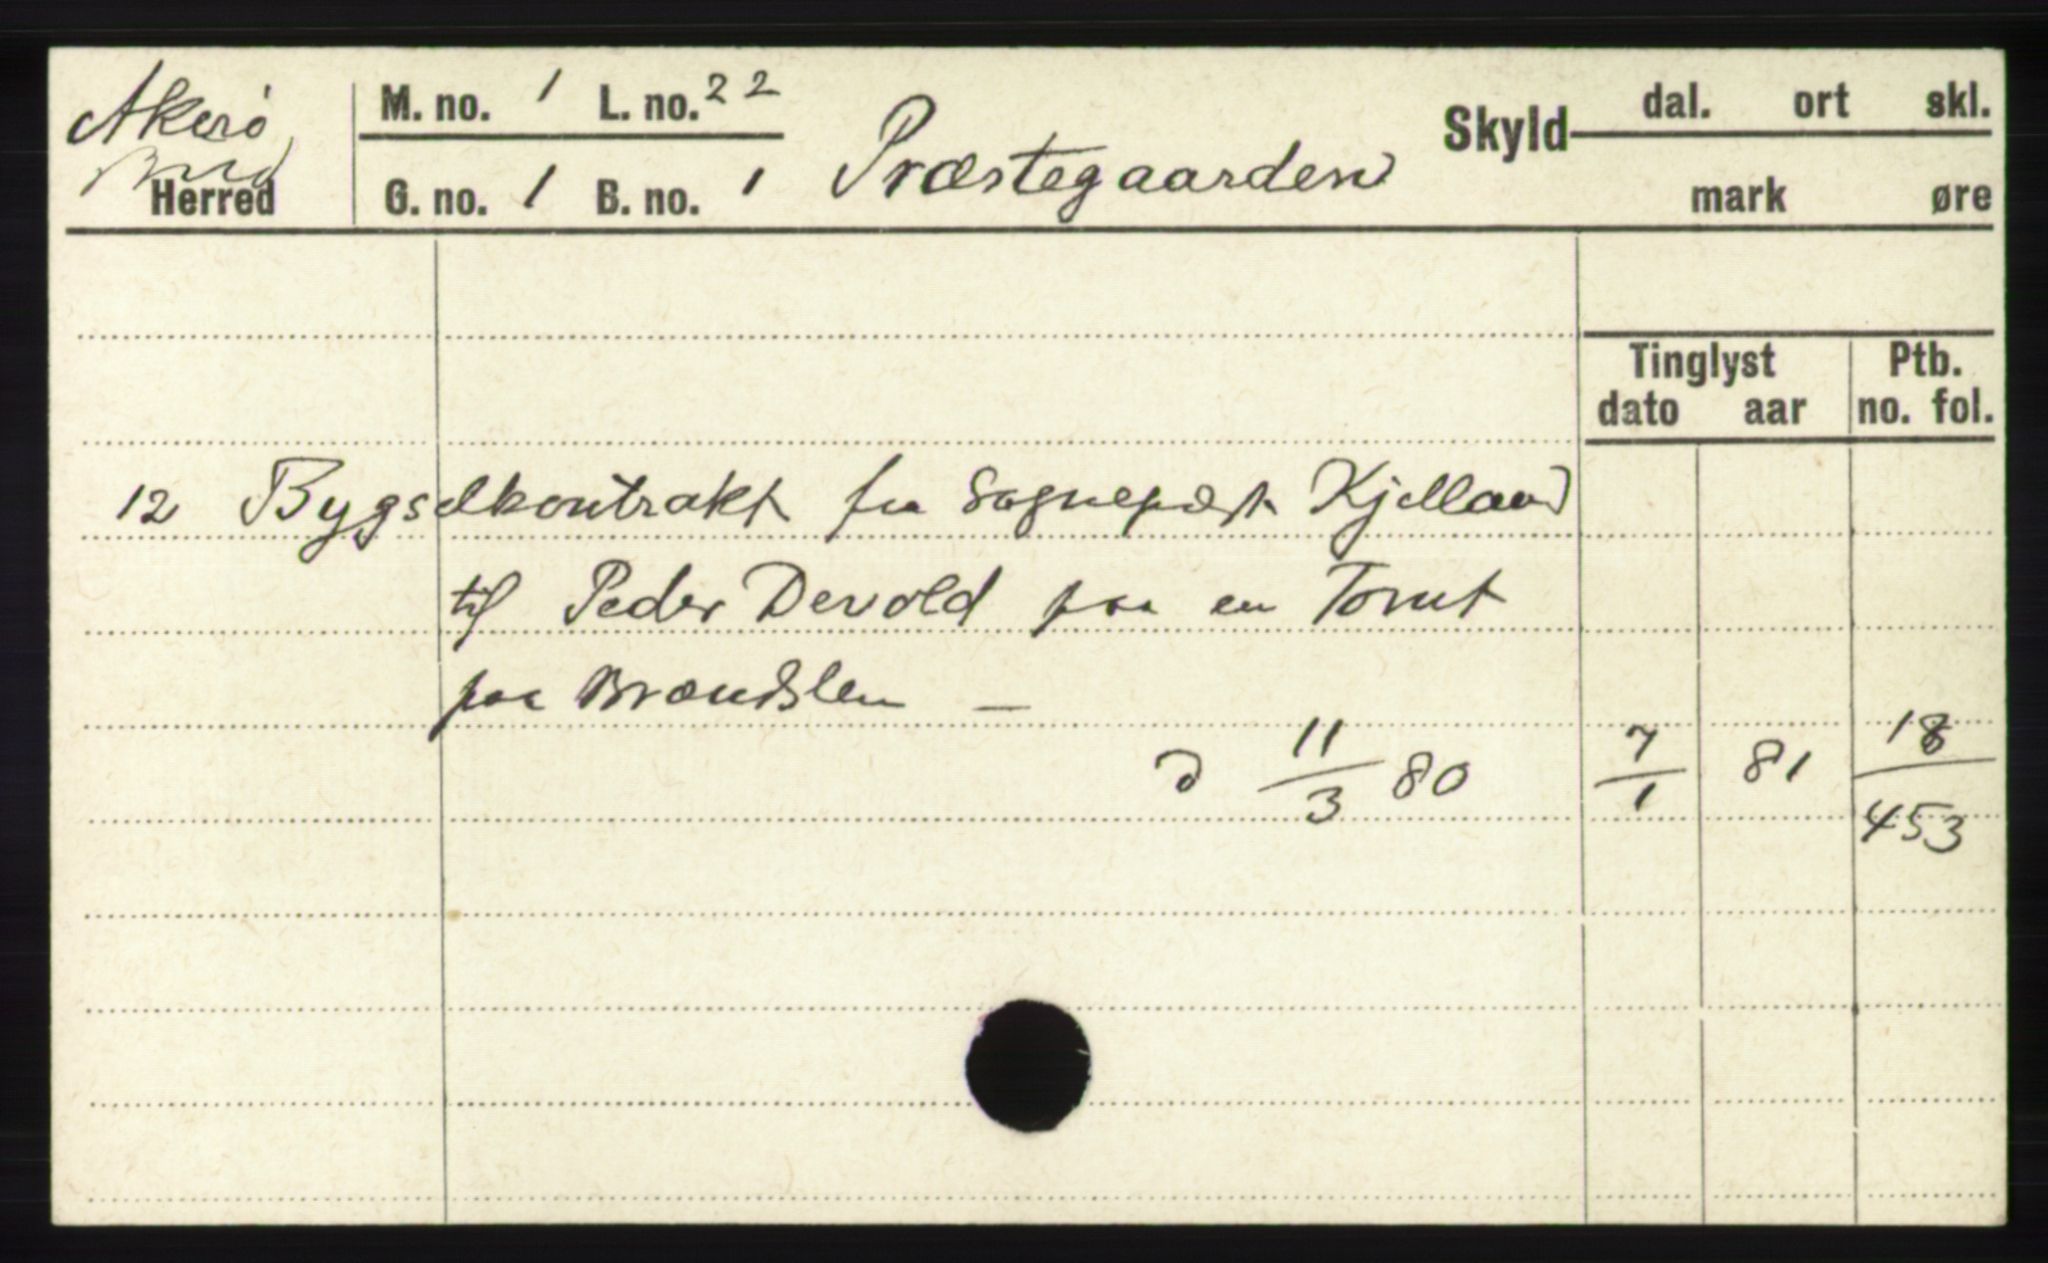 Akerö M. no. 1 L. no. 22 Skyld dal. ort skl.
Bud
Herred G. no. 1 B. no. 1 Præstegaarden mark øre
Tinglyst Ptb.
dato aar no. fol.
12 Bygselkontrakt fra Sognepræst Kjelland
til Peder Devold paa en Tomt
paa
d 11/3 80 7/1 81 18/453